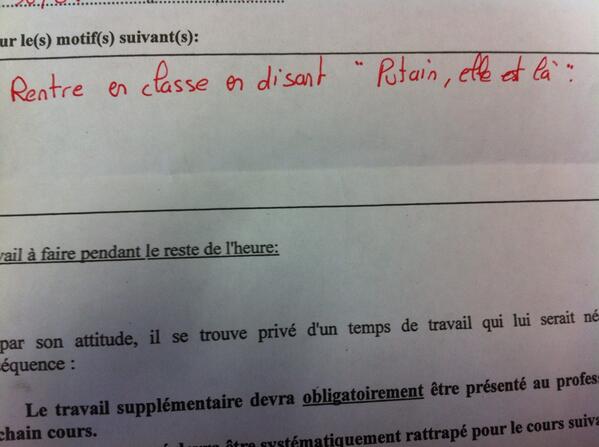 ur le(s) motif(s) suivant(s):
Rentre en classe en disant " Putain, elle est là ".
vail à faire pendant le reste de l'heure:
par son attitude, il se trouve privé d'un temps de travail qui lui serait né
équence :
Le travail supplémentaire devra obligatoirement être présenté au profess
chain cours.
être systématiquement rattrapé pour le cours suiva